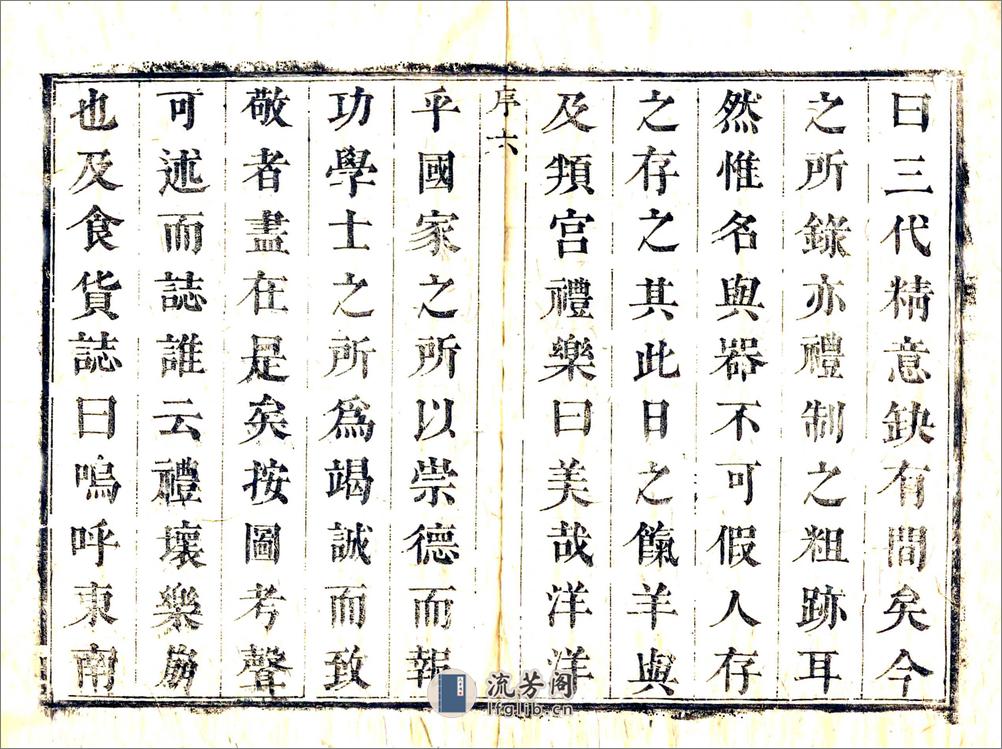 曰三代精意缺有間矣今
之所錄亦禮制之粗跡耳
然惟名與器不可假人存
之存之其此日之餼羊與
及頖宮禮樂曰美哉洋洋
序六
乎國家之所以崇德而報
功學士之所爲竭誠而致
敬者盡在是矣按圖考聲
可述而誌誰云禮壞樂崩
也及食貨誌曰嗚呼東南
流芳阁
lfglib.cn